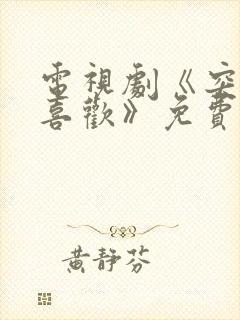 電視劇《突
喜歡》免費
黃靜芬